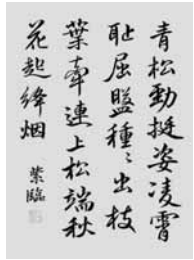 青松勁挺姿凌霄
耻屈盤種〻出枝
葉牽連上松端秋
花起絳烟
紫臨